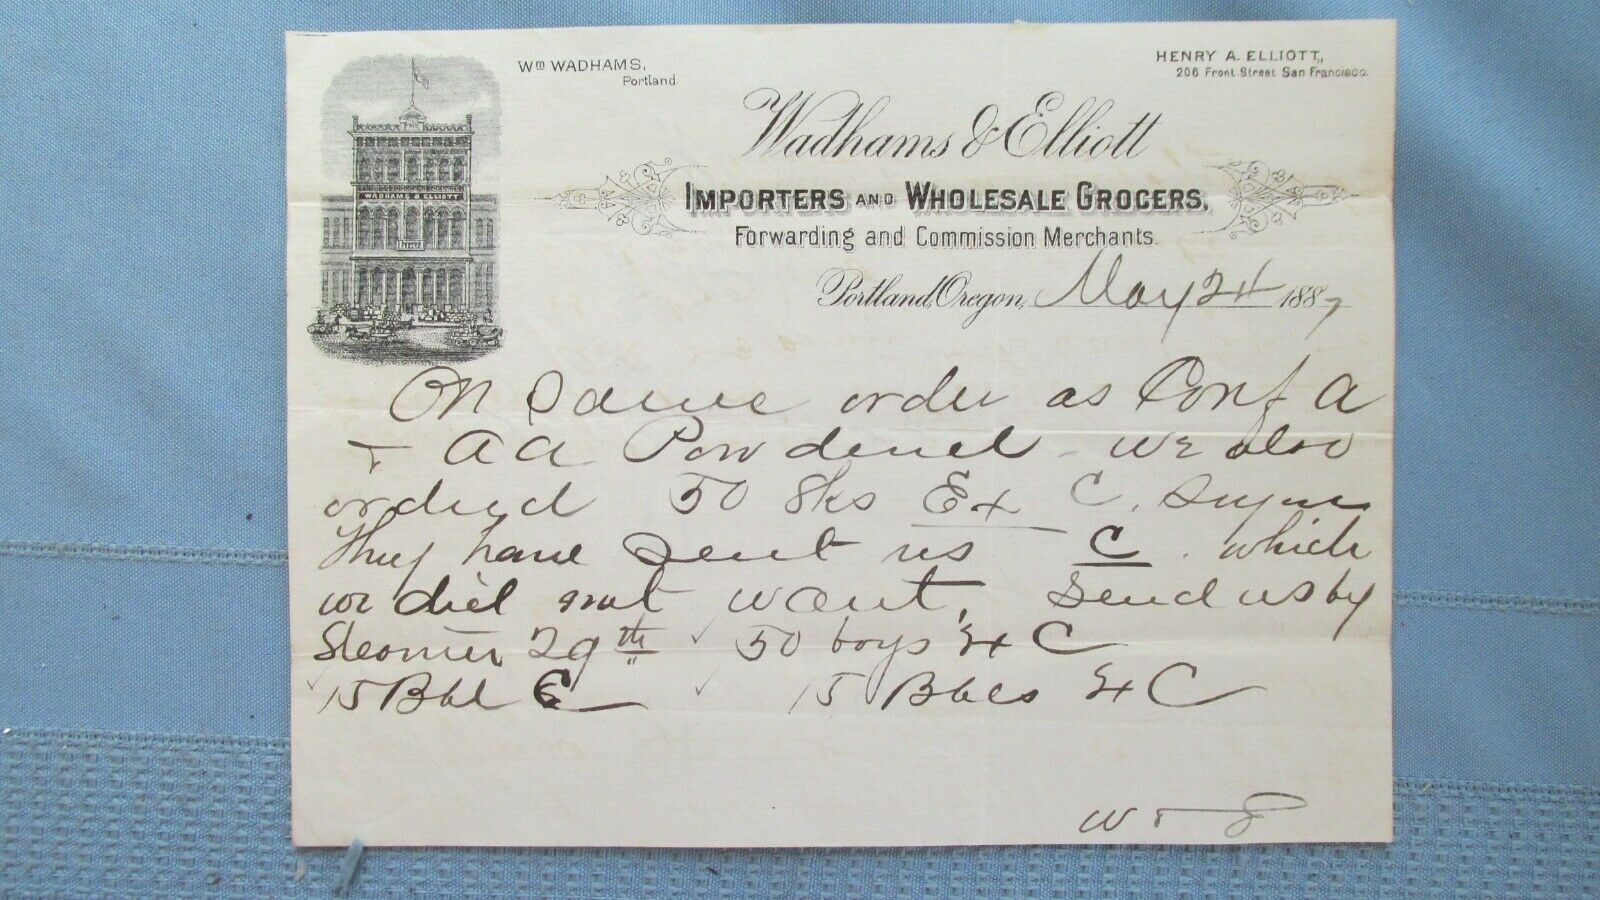 Wm WADHAMS,
Portland.
HENRY A. ELLIOTT,
206 Front Street San Francisco.
WADHAMS & ELLIOTT
Wadhams & Elliott
IMPORTERS AND WHOLESALE GROCERS,
Forwarding and Commission Merchants.
Portland, Oregon, May 24 1887
On Same order as Conf A
+ AA Powdered - we also
ordered 50 Sks Ex C. Sugar
they have sent us C. which
we did not want. Send us by
Steamer 29th 50 Ex C
15 Bbl C 15 Bbls Ex C
W + E